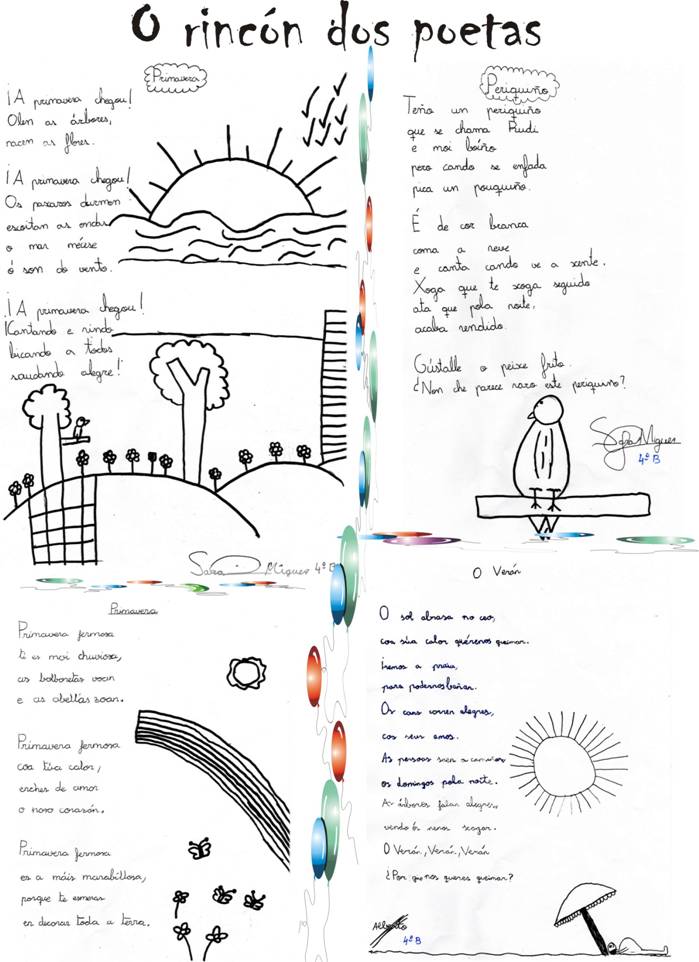 O rincón dos poetas
Primavera
¡A primavera chegou!
Olen as árbores,
nacen as flores.
¡A primavera chegou!
Os paxaros durmen
escoitan as ondas
o mar mécese
ó son do vento.
¡A primavera chegou!
Cantando e rindo
bicando a todos
saudando alegre!
Sara Míguez 4º B
Periquiño
Teño un periquiño
que se chama Piudi
e moi boiño
pero cando se enfada
pica un pouquiño.
É de cor branca
coma a neve
e canta cando ve a xente.
Xoga que te xoga seguido
ata que pola noite,
acaba rendido.
Gústalle o peixe frito.
¿Non che parece raro este periquiño?
Sara Míguez
4º B
Primavera
Primavera fermosa
ti es moi chuviosa,
as bolboretas voan
e as abellas zoan.
Primavera fermosa
coa túa calor,
enches de amor
o noso corazón.
Primavera fermosa
es a máis marabillosa,
porque te esmeras
en decorar toda a terra.
O Verán
O sol abrasa no ceo,
coa súa calor quérenos queimar.
Iremos a praia,
para podernos bañar.
Os cans corren alegres,
cos seus amos.
As persoas saen a camiñar
os domingos pola noite.
As árbores falan alegres,
vendo ós nenos xogar.
O Verán, Verán, Verán
¿Por que nos queres queimar?
Alberto
4º B